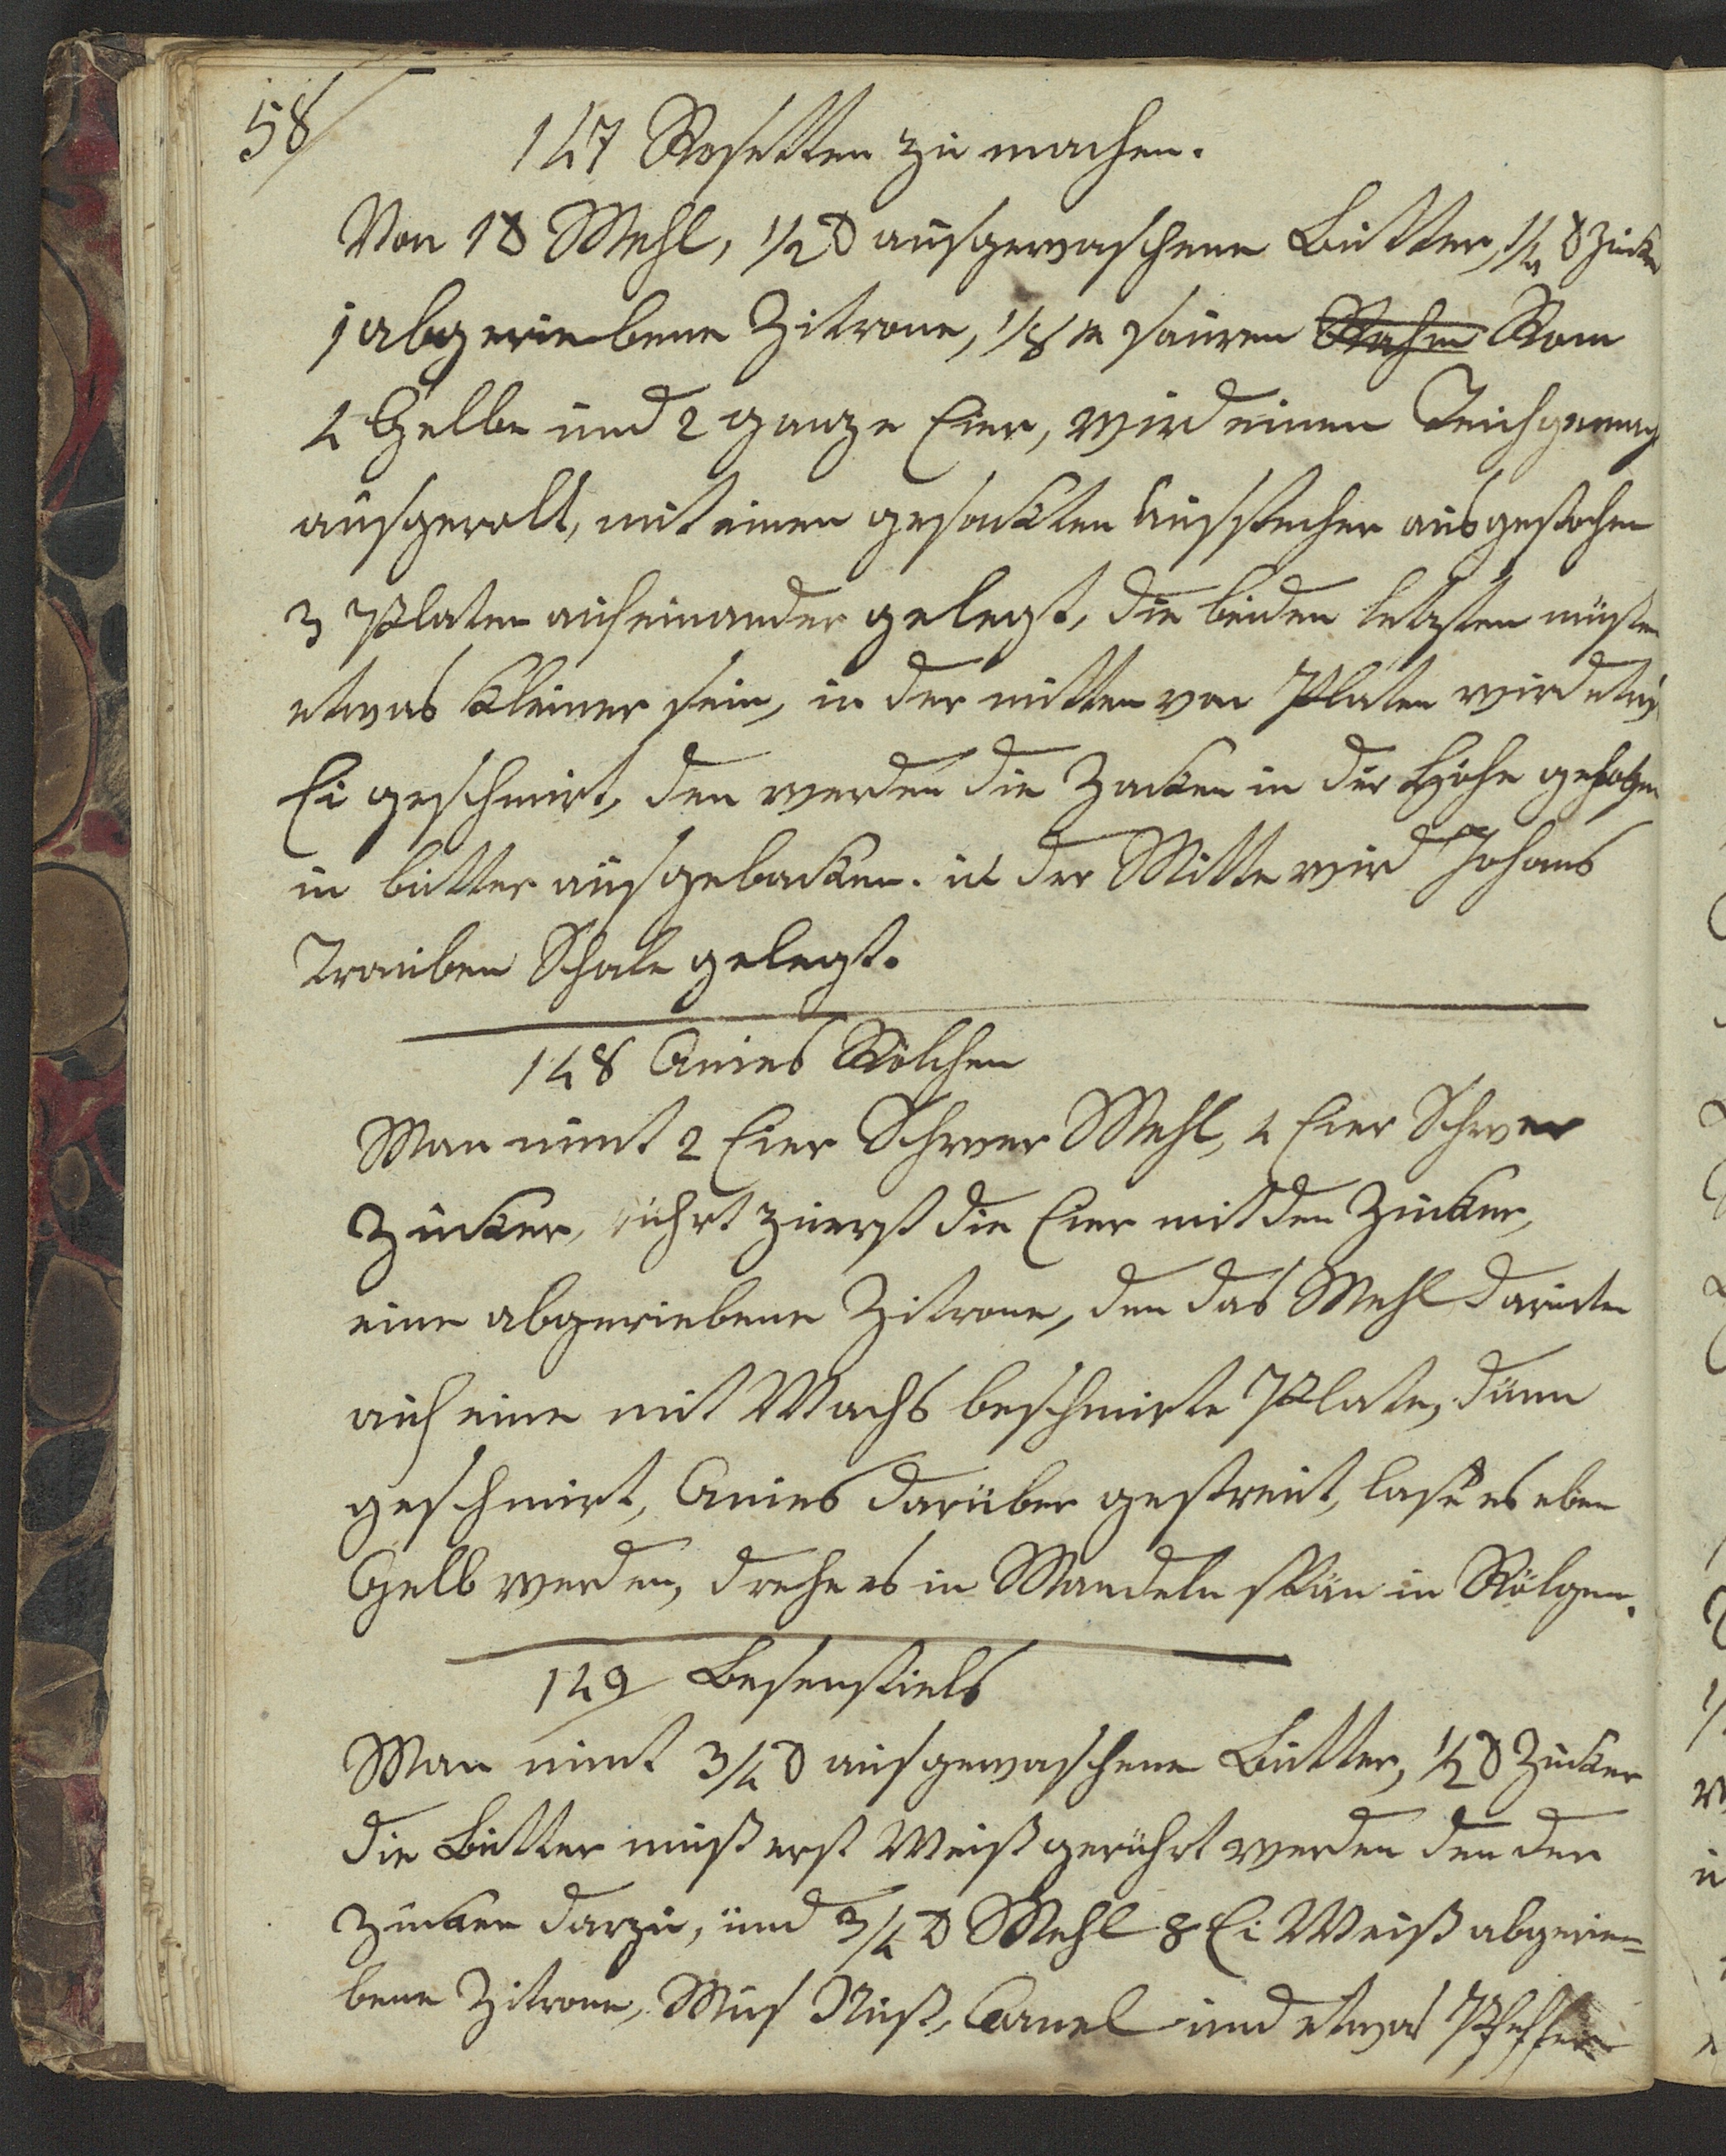 58
147 Rosetten zu machen.
Von 1 ℔ Mehl, 1/2 ℔ ausgewaschene Butter, 1/4 ℔ Zucker
1 abgeriebene Zitrone, 1/8 m sauren Rahm Rom
4 Gelbe und 2 ganze Eier, wird einen Teich gemach
ausgerolt, mit einen gesackten Ausstecher ausgestochen
3 Platen aufeinander gelegt, die beiden letzten müßen
etwas kleiner sein, in der mitten von Platen wird etwas
Ei geschmirt, den werden die Zacken in der Höhe gebogen
in butter ausgebacken. in der Mitte wird Johans
Trauben Schale gelegt.
148 Anies Rölchen
Man nimt 2 Eier Schwer Mehl, 4 Eier Schwer
Zucker, rührt zuerst die Eier mit den Zucker,
eine abgeriebene Zitrone, den das Mehl darunter
auf eine mit Wachs beschmirte Plate, dünn
geschmirt, Anies darüber gestreut, lasse es eben
Gelb werden, drehe es in Mandeln spän in Rölgen.
149 Besenstiels
Man nimt 3/4 ℔ ausgewaschene Butter, 1/2 ℔ Zucker
die Butter muß erst Weiß gerührt werden den den
Zucker darzu, und 3/4 ℔ Mehl 8 Ei Weiß abgerie=
bene Zitrone, Mus Nuß, Canel und etwas Pfeffer